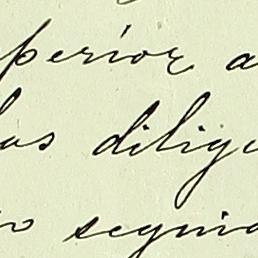 perior a
las dilige
o seguid